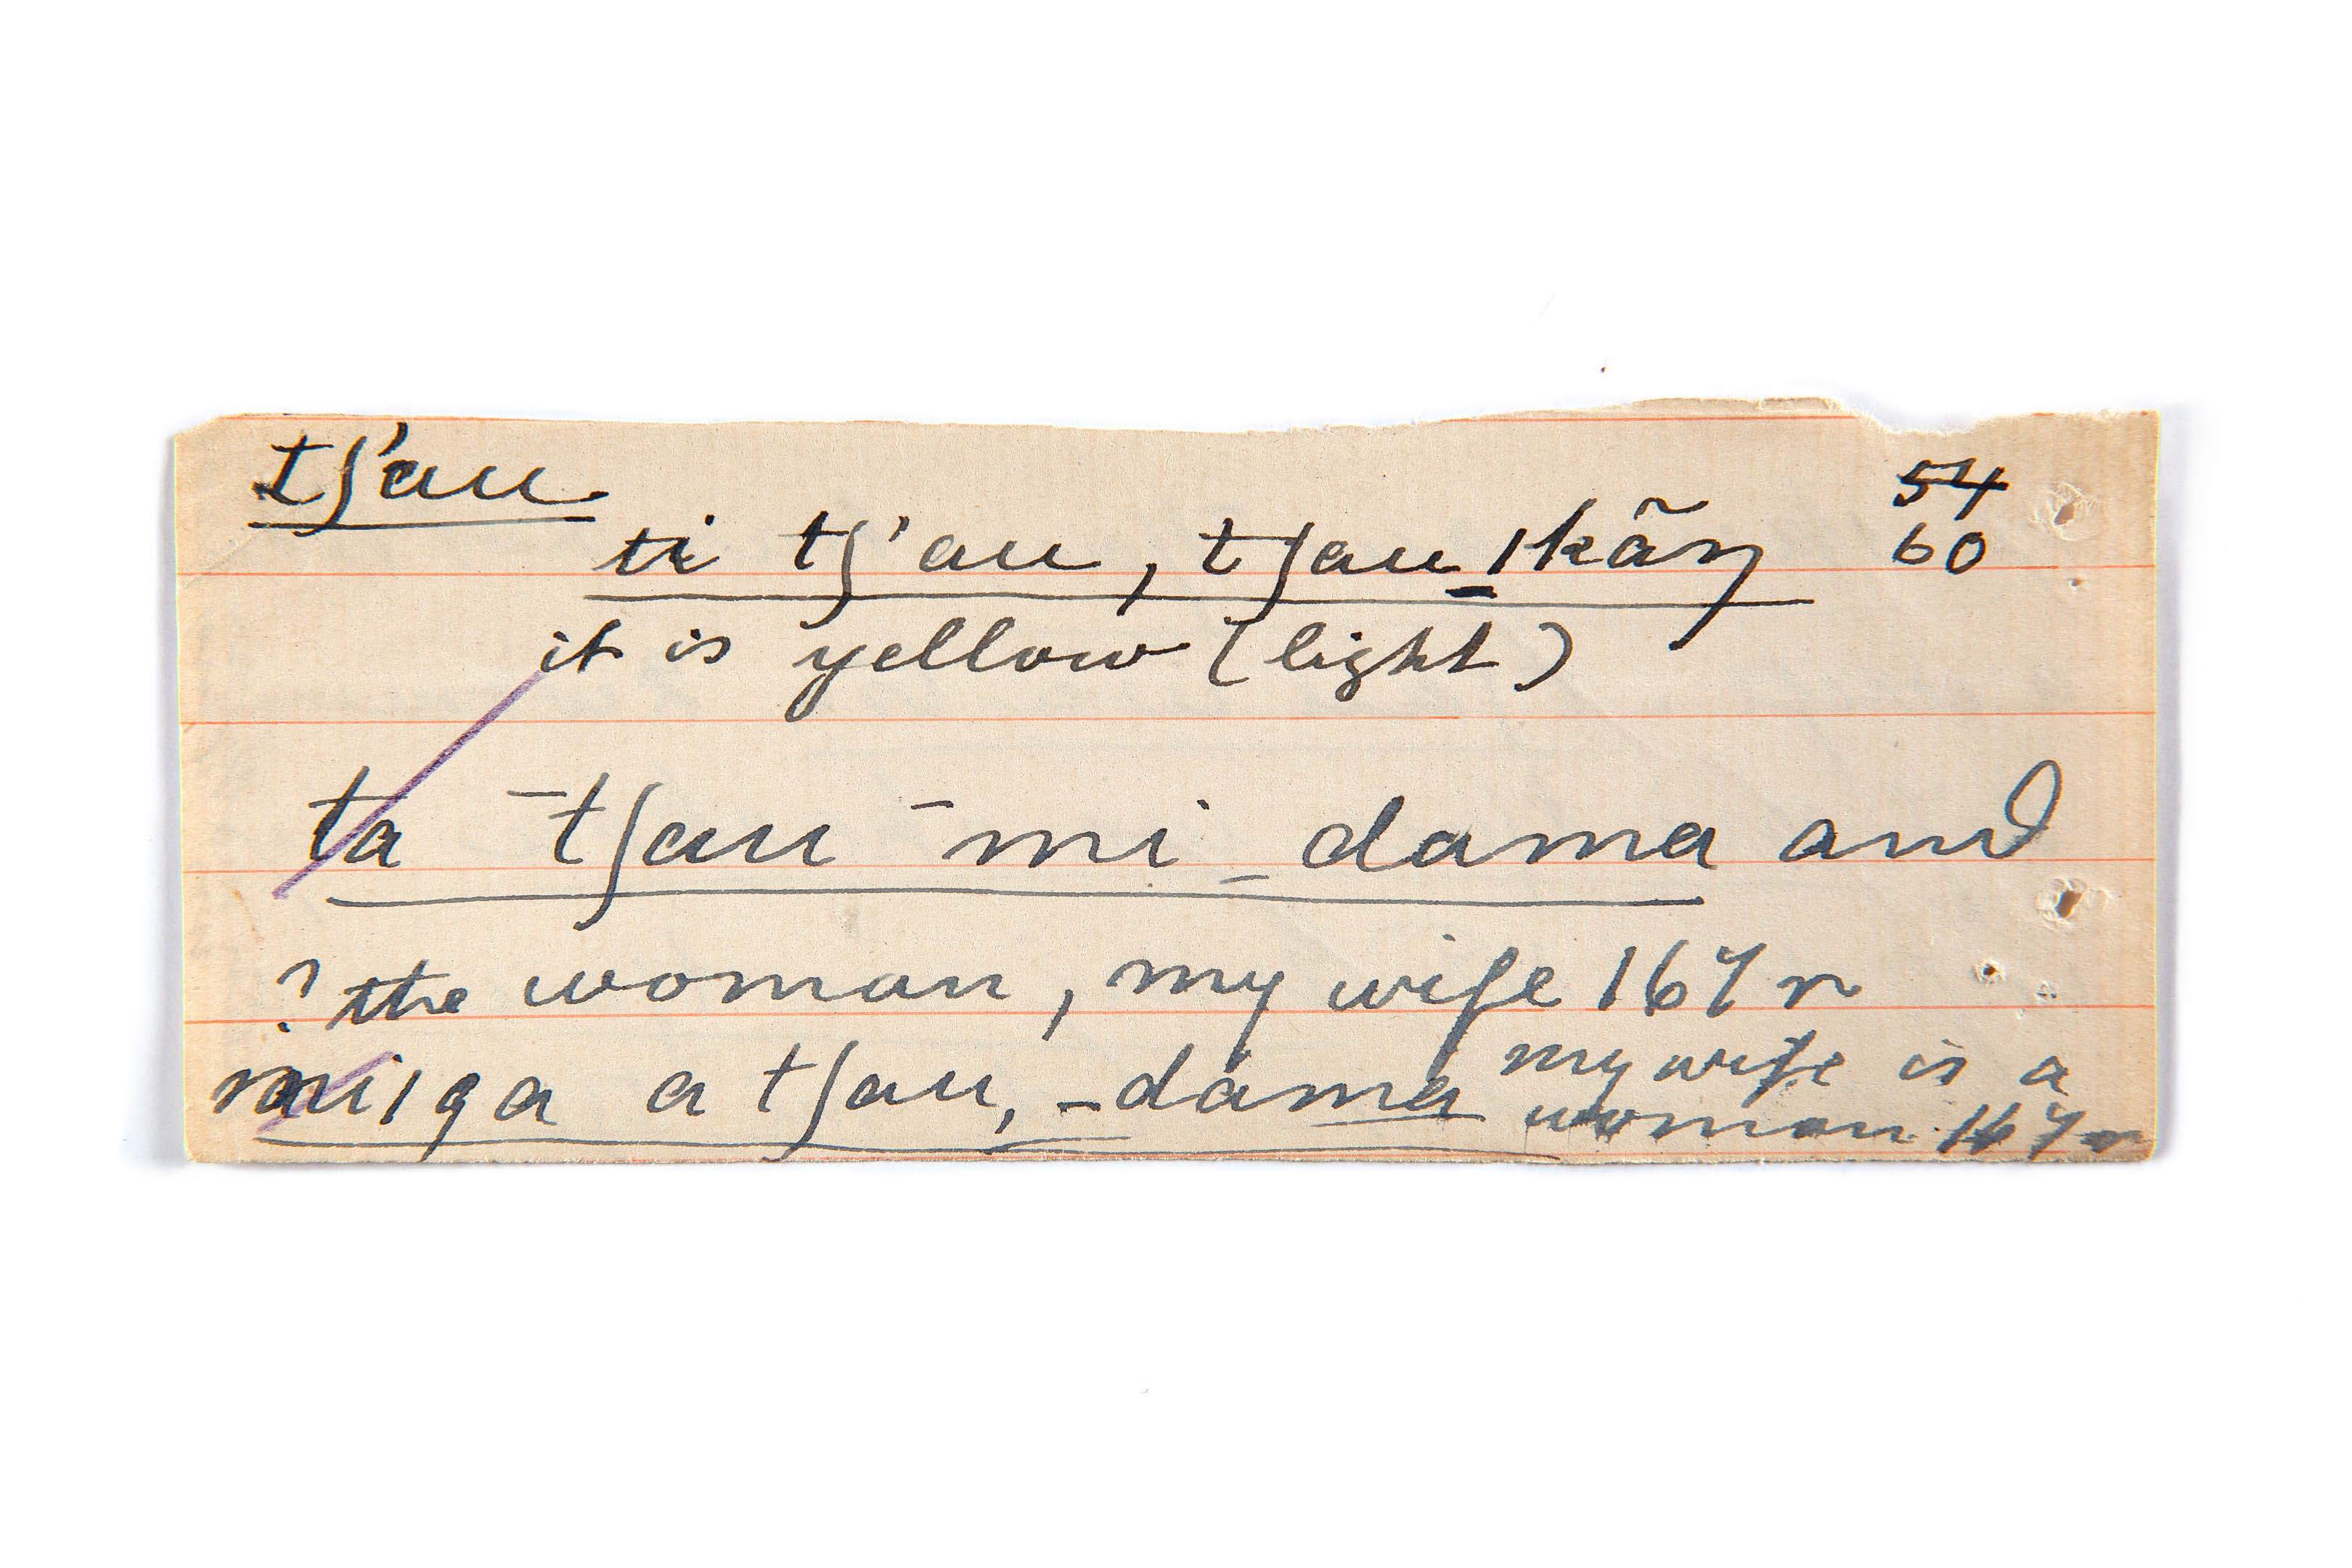 tʃ'au
ti tʃ'au, tʃau_ǀkãŋ 54
60
it is yellow (light)
ta ¯tʃau ¯mi _dama and
? the woman, my wife 167 r
miǀga a tʃau, _dama my wife is a
woman 167 r